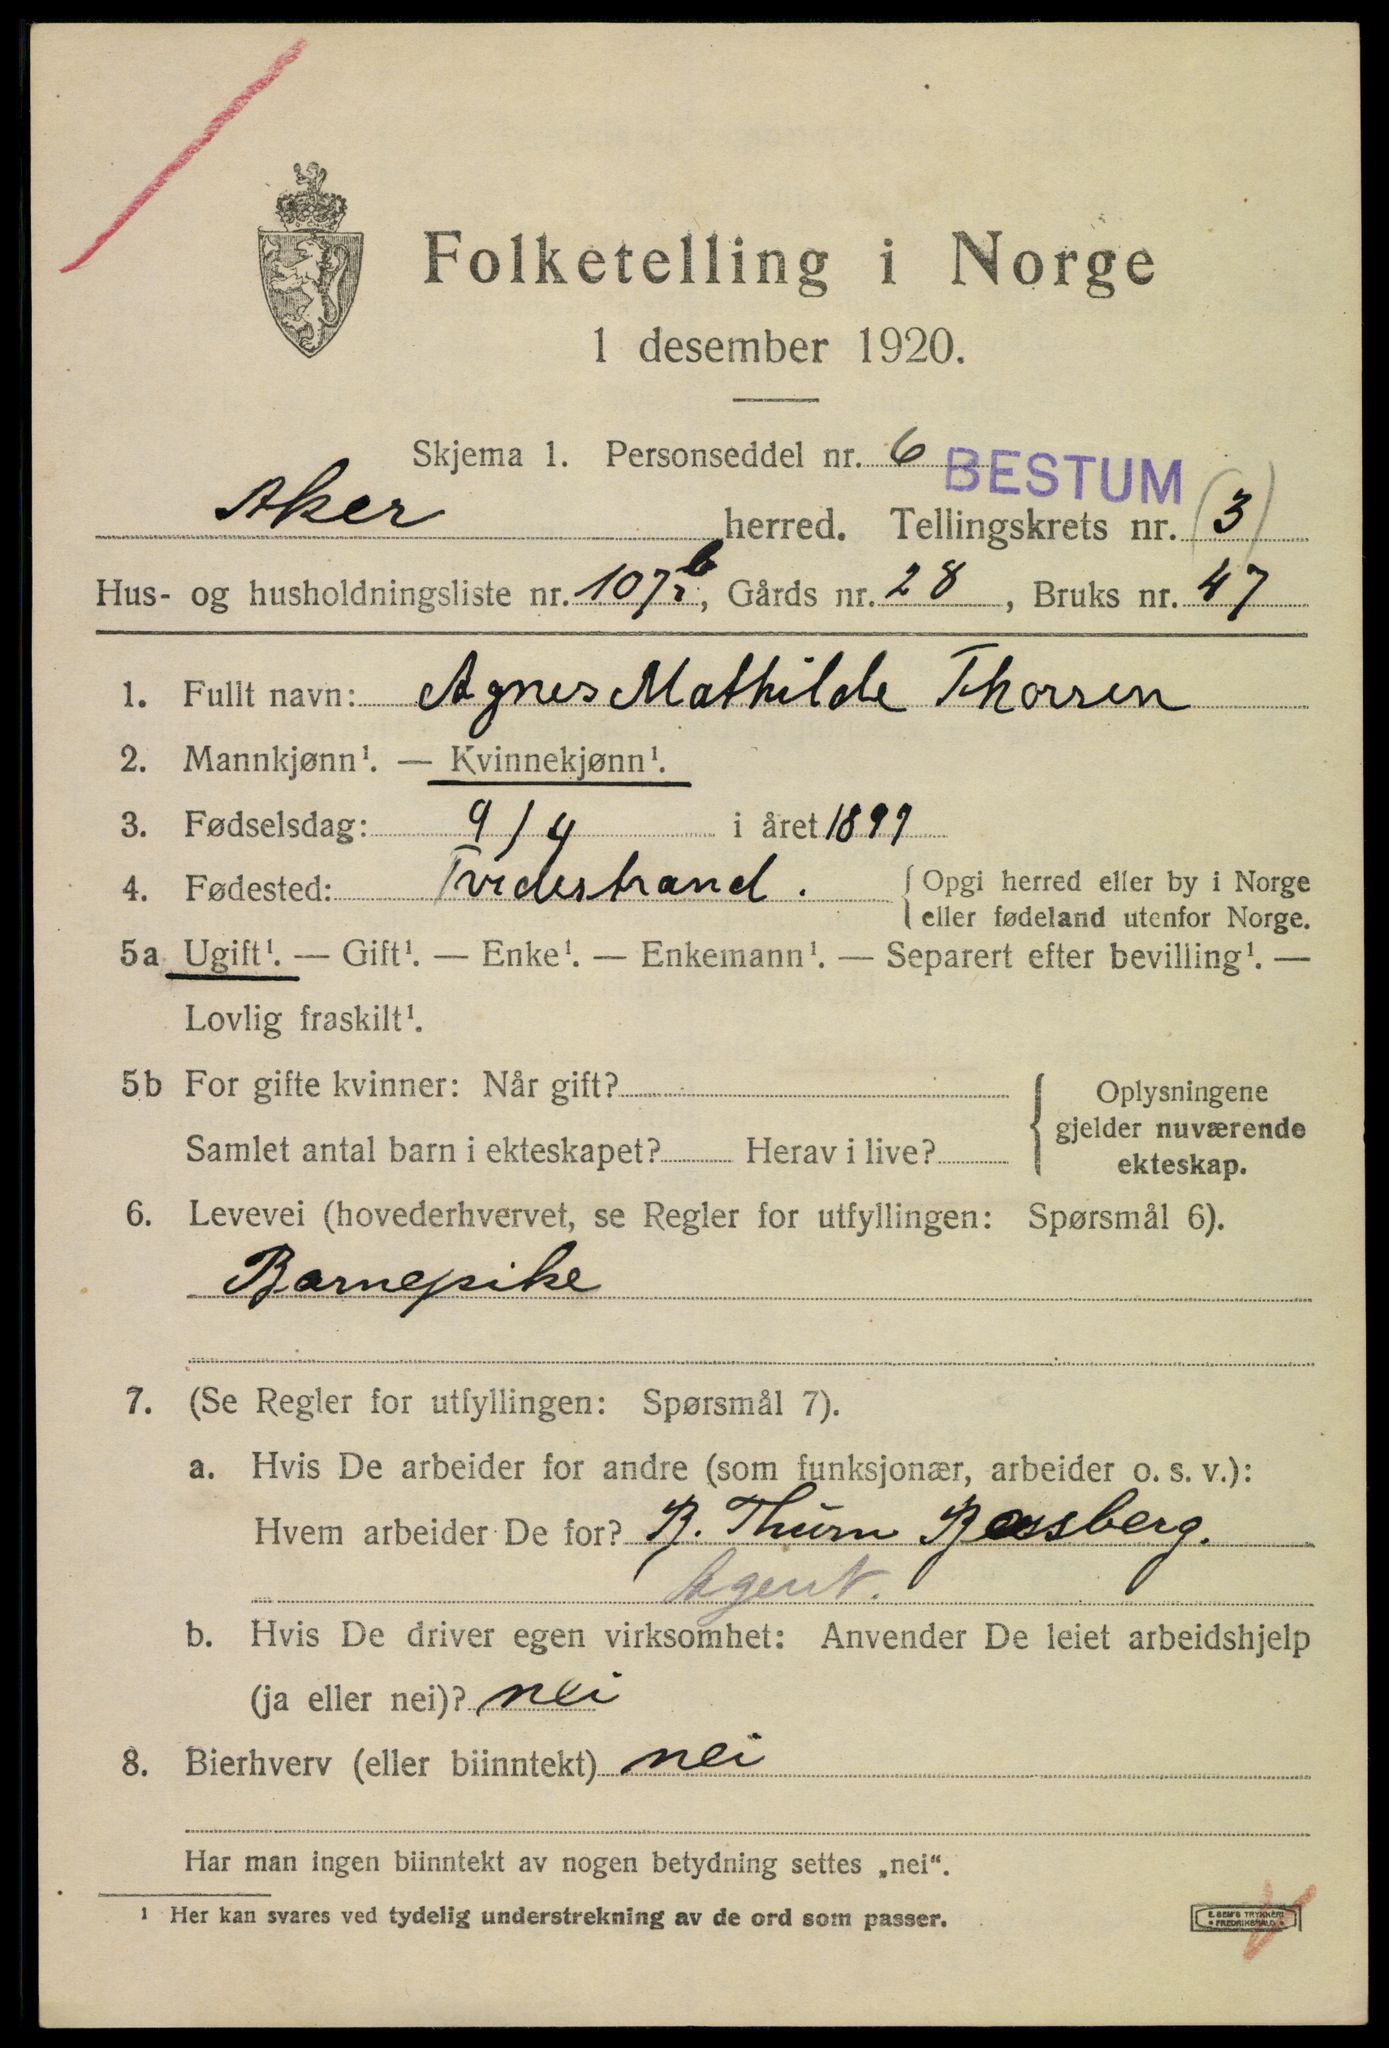 Folketelling i Norge
1 desember 1920.
Skjema 1. Personseddel nr. 6
BESTUM
Aker herred. Tellingskrets nr. (3)
Hus- og husholdningsliste nr. 107 b, Gårds nr. 28, Bruks nr. 47
1. Fullt navn: Agnes Mathilde Thorsen
2. Mannkjønn¹. — Kvinnekjønn¹.
3. Fødselsdag: 9/4 i året 1899
4. Fødested: Tvedestrand. { Opgi herred eller by i Norge
eller fødeland utenfor Norge.
5a Ugift¹. — Gift¹. — Enke¹. — Enkemann¹. — Separert efter bevilling¹. —
Lovlig fraskilt¹.
5b For gifte kvinner: Når gift?
Samlet antal barn i ekteskapet? Herav i live?
Oplysningene
gjelder nuværende
ekteskap.
6. Levevei (hovederhvervet, se Regler for utfyllingen: Spørsmål 6).
Barnepike
7. (Se Regler for utfyllingen: Spørsmål 7).
a. Hvis De arbeider for andre (som funksjonær, arbeider o. s. v.):
Hvem arbeider De for? B. Thurn
Agent.
b. Hvis De driver egen virksomhet: Anvender De leiet arbeidshjelp
(ja eller nei)? nei
8. Bierhverv (eller biinntekt) nei
Har man ingen biinntekt av nogen betydning settes „nei“.
¹ Her kan svares ved tydelig understrekning av de ord som passer.
E. SEM'S TRYKKERI
* FREDRIKSHALD *